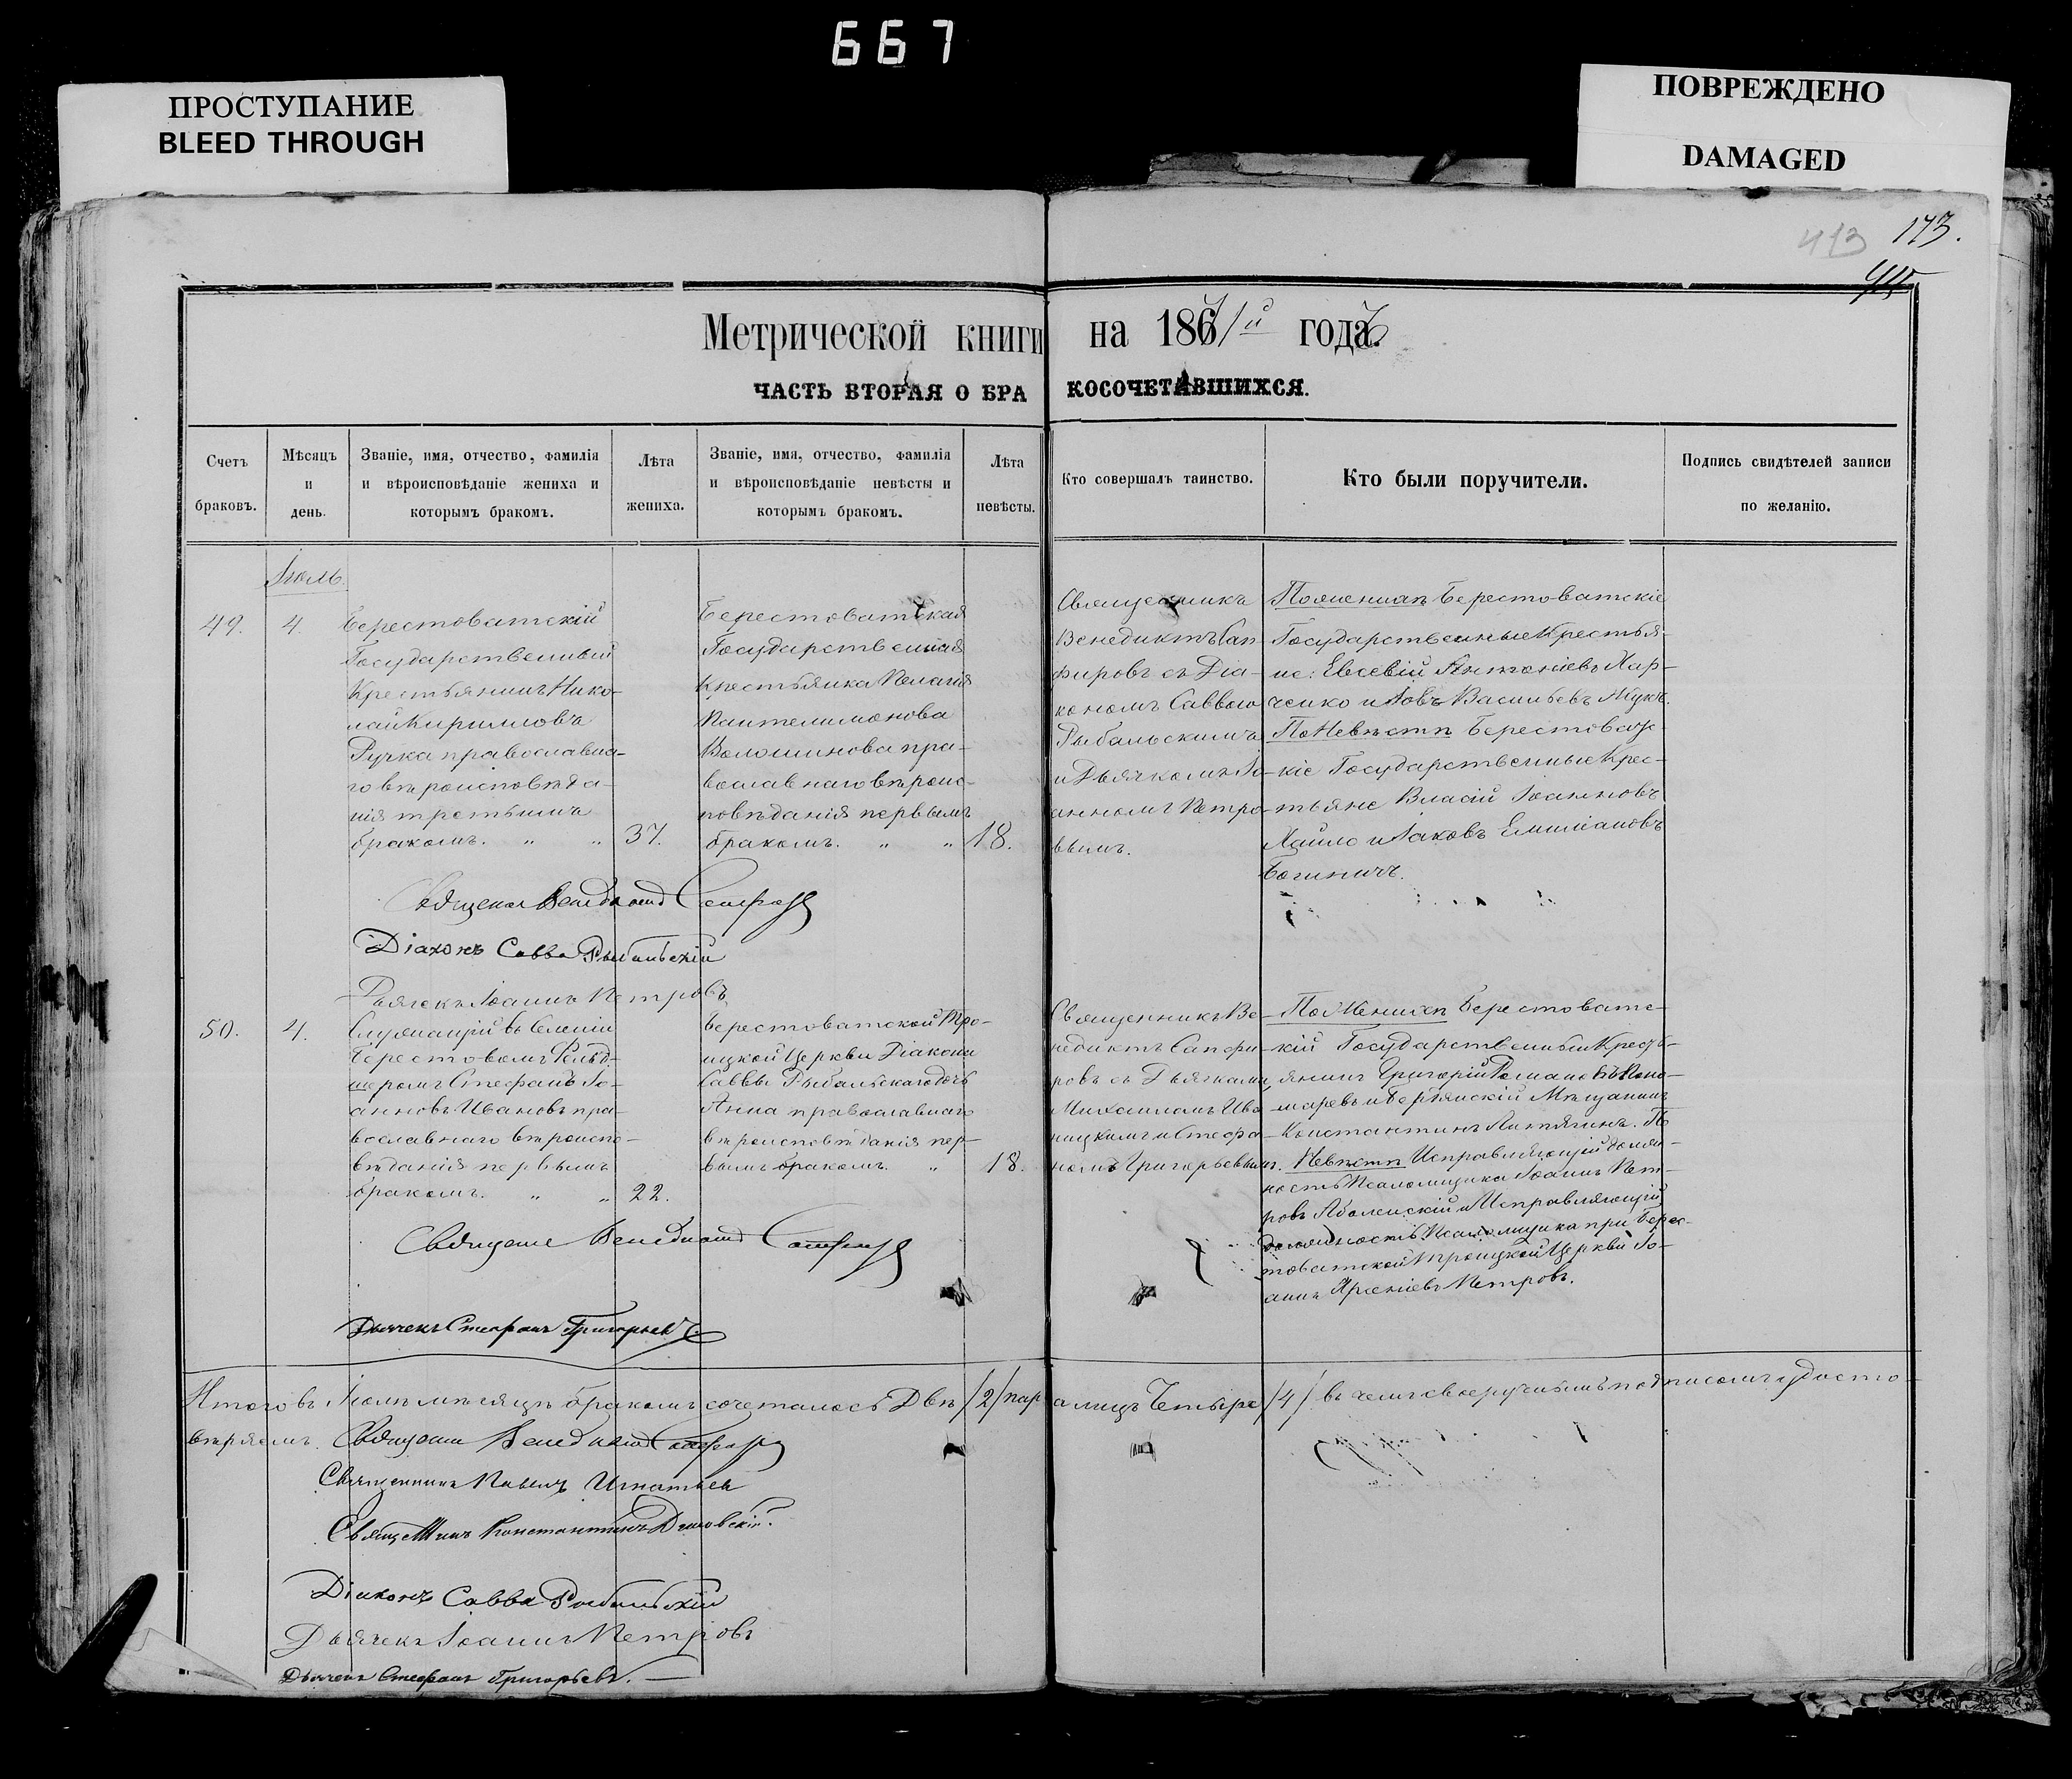 667
ПРОСТУПАНИЕ
BLEED THROUGH
ПОВРЕЖДЕНО
DAMAGED
413 173.
Метрической книги на 1867/й года.
ЧАСТЬ ВТОРАЯ О БРАКОСОЧЕТАВШИХСЯ.
Счетъ
браковъ.
Мѣсяцъ
и
день.
Званіе, имя, отчество, фамилія
и вѣроисповѣданіе жениха и
которымъ бракомъ.
Лѣта
жениха.
Званіе, имя, отчество, фамилія
и вѣроисповѣданіе невѣсты и
которымъ бракомъ.
Лѣта
невѣсты.
Кто совершалъ таинство.
Кто были поручители.
Подпись свидѣтелей записи
по желанію.
Іюль.
49.
4.
Берестоватскій
Государственный
Крестьянинъ Нико-
лай Кирилловъ
Ручка православна-
го вѣроисповѣда-
нія третьимъ
бракомъ. „ „
37.
Берестоватская
Государственная
Крестьянка Пелагія
Пантелимонова
Волошинова пра-
вославнаго вѣроис-
повѣданія первымъ
бракомъ. „ „
18.
Священникъ
Венедиктъ Сап-
фировъ съ Діа-
кономъ Саввою
Рыбальскимъ
и Дьячкомъ Іо-
анномъ Петро-
вымъ.
По женихѣ Берестоватскіе
Государственные Крестья-
не: Евсевій Антоніевъ Хар-
ченко и Іовъ Васильевъ Жукъ.
По Невѣстѣ Берестоватс-
кіе Государственные Крес-
тьяне Власій Іоанновъ
Хайло и Іаковъ Емиліановъ
Богиничъ.
Священникъ Венедиктъ Сапфировъ
Діаконъ Савва Рыбальскій
Дьячекъ Іоаннъ Петровъ
50.
4.
Служащій въ Селеніи
Берестовомъ Фельд-
шеромъ Стефанъ Іо-
анновъ Ивановъ пра-
вославнаго вѣроиспо-
вѣданія первымъ
бракомъ. „ „
22.
Берестоватской Тро-
ицкой Церкви Діакона
Саввы Рыбальскаго дочь
Анна православнаго
вѣроисповѣданія пер-
вымъ бракомъ. „
18.
Священникъ Ве-
недиктъ Сапфи-
ровъ съ Дьячками
Михаиломъ Ива-
ницкимъ и Стефа-
номъ Григорьевымъ.
По Женихѣ Берестоватс-
кій Государственный Кресть-
янинъ Григорій Романовъ Поно-
маревъ и Бердянскій Мѣщанинъ
Константинъ По
Невѣстѣ Исправляющій должн-
ность Псаломщика Іоаннъ Пет-
ровъ Аболенскій и Исправляющій
должность Псаломщика при Берес-
товатской Троицкой Церкви Іо-
аннъ Арсеніевъ Петровъ.
Священникъ Венедиктъ Сапфировъ
Дьячекъ Стефанъ Григорьевъ.
Итого въ Іюлѣ мѣсяцѣ бракомъ сочеталось Двѣ /2/ пары а лицъ Четыре /4/ въ чемъ своеручнымъ подписомъ удосто-
вѣряемъ. Священникъ Венедиктъ Сапфировъ
Священникъ Павелъ Игнатьев
Священникъ Константинъ
Діаконъ Савва Рыбальскій
Дьячекъ Іоаннъ Петровъ
Дьячекъ Стефанъ Григорьевъ.